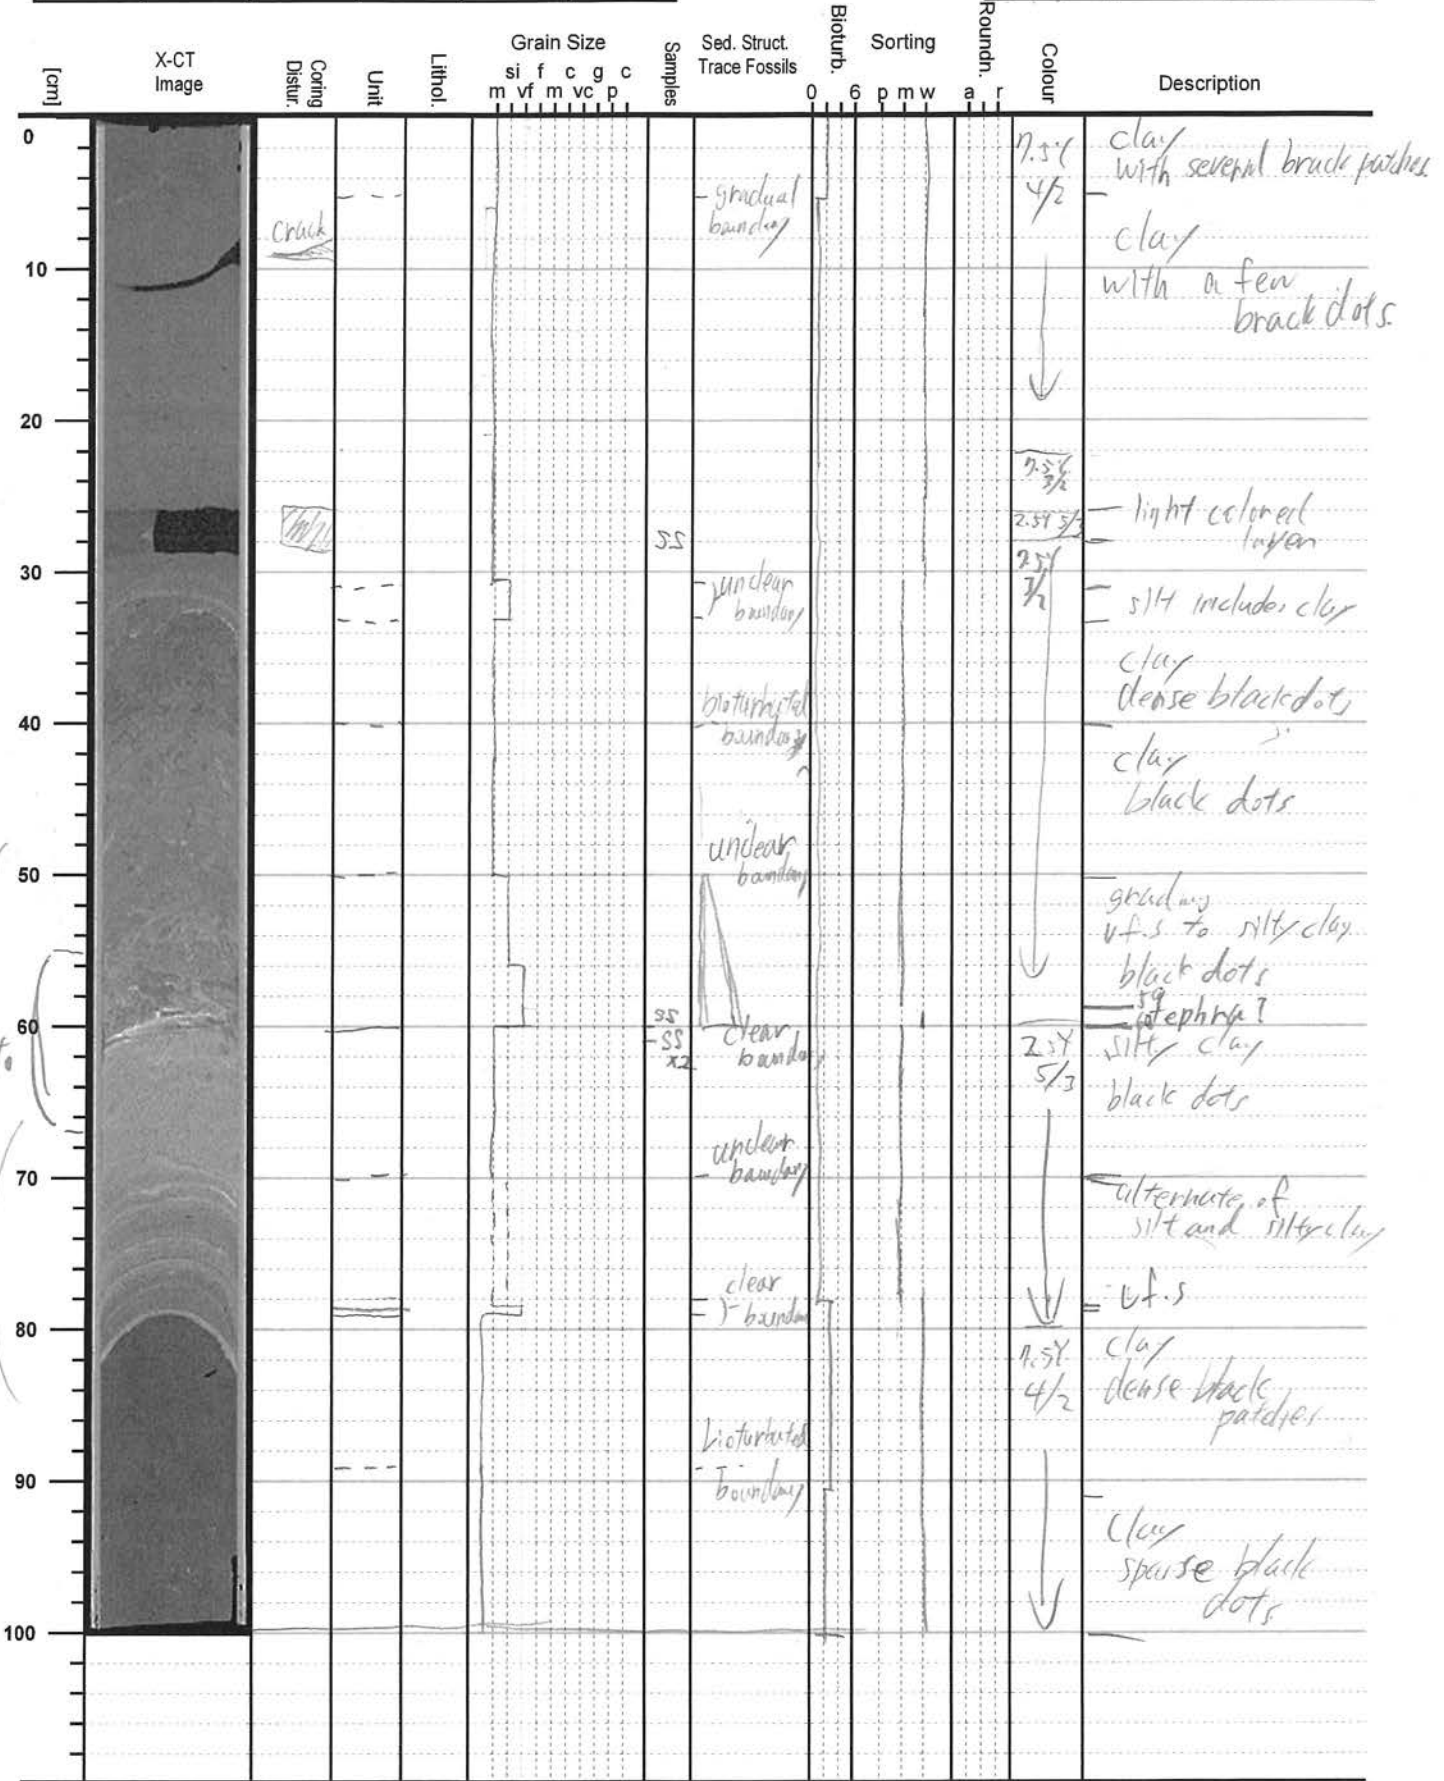 [cm]
X-CT
Image
Coring
Distur.
Unit
Lithol.
Grain Size
si f c g c
m vf m vc p
Samples
Sed. Struct.
Trace Fossils
Bioturb.
0 6
Sorting
p m w
Roundn.
a r
Colour
Description
0
10
20
30
40
50
60
70
80
90
100
crack
SS
SS
SS
x2
gradual
boundary
unclear
boundary
bioturbated
boundary
unclear
boundary
clear
boundary
unclear
boundary
clear
boundary
bioturbated
boundary
7.5Y
4/2
7.5Y
3/2
2.5Y 5/3
7.5Y
3/2
2.5Y
5/3
7.5Y
4/2
clay
with several brack patches
clay
with a few
brack dots.
light colored
layer
silt includes clay
clay
dense black dots
clay
black dots
grading
v.f.s to silty clay
black dots
59
60 tephra?
silty clay
black dots
alternate of
silt and silty clay
v.f.s
clay
dense black
patches
clay
sparse black
dots